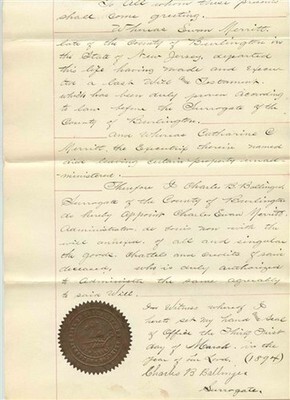 To all whom these presents
shall Come greeting.
Whereas Ewan Merritt
late of the County of Burlington in
the State of New Jersey, departed
this life having made and execu-
ted a last Will & Testament
which has been duly proven according
to law before the Surrogate of the
County of Burlington.
And Whereas Catharine C
Merritt, the Executrix therein named
died leaving certain property unad-
ministered.
Therefore I Charles B. Bellinger
Surrogate of the County of Burlington
do hereby Appoint Charles Ewan Merritt
Administrator de bonis non with the
will annexed, of all and singular
the goods, Chattels and Credits of said
deceased, who is duly authorized
to Administer the same agreeably
to said Will.
In Witness whereof I
have set my hand & Seal
of Office the Thirty First
day of March in the
year of our Lord, (1894)
Charles B Bellinger
Surrogate.